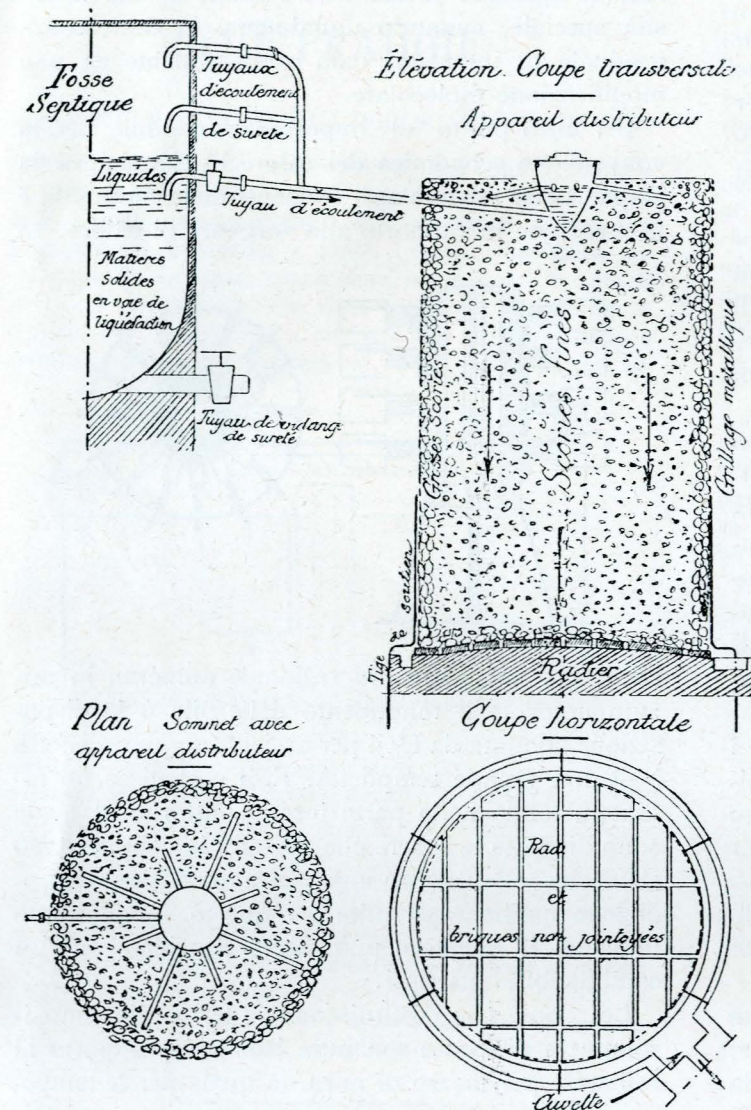 Fosse
Septique
Tuyaux
d'écoulement
de sureté
Liquides
Tuyau d'écoulement
Matières
solides
en voie de
liquéfaction
Tuyau de vidang
de sureté
Élévation Coupe transversale
Appareil distributeur
Grosses Scories
Scories fines
Grillage métallique
Tige de soutien
Radier
Plan Sommet avec
appareil distributeur
Goupe horizontale
Radi
et
briques non jointoyées
Cuvette